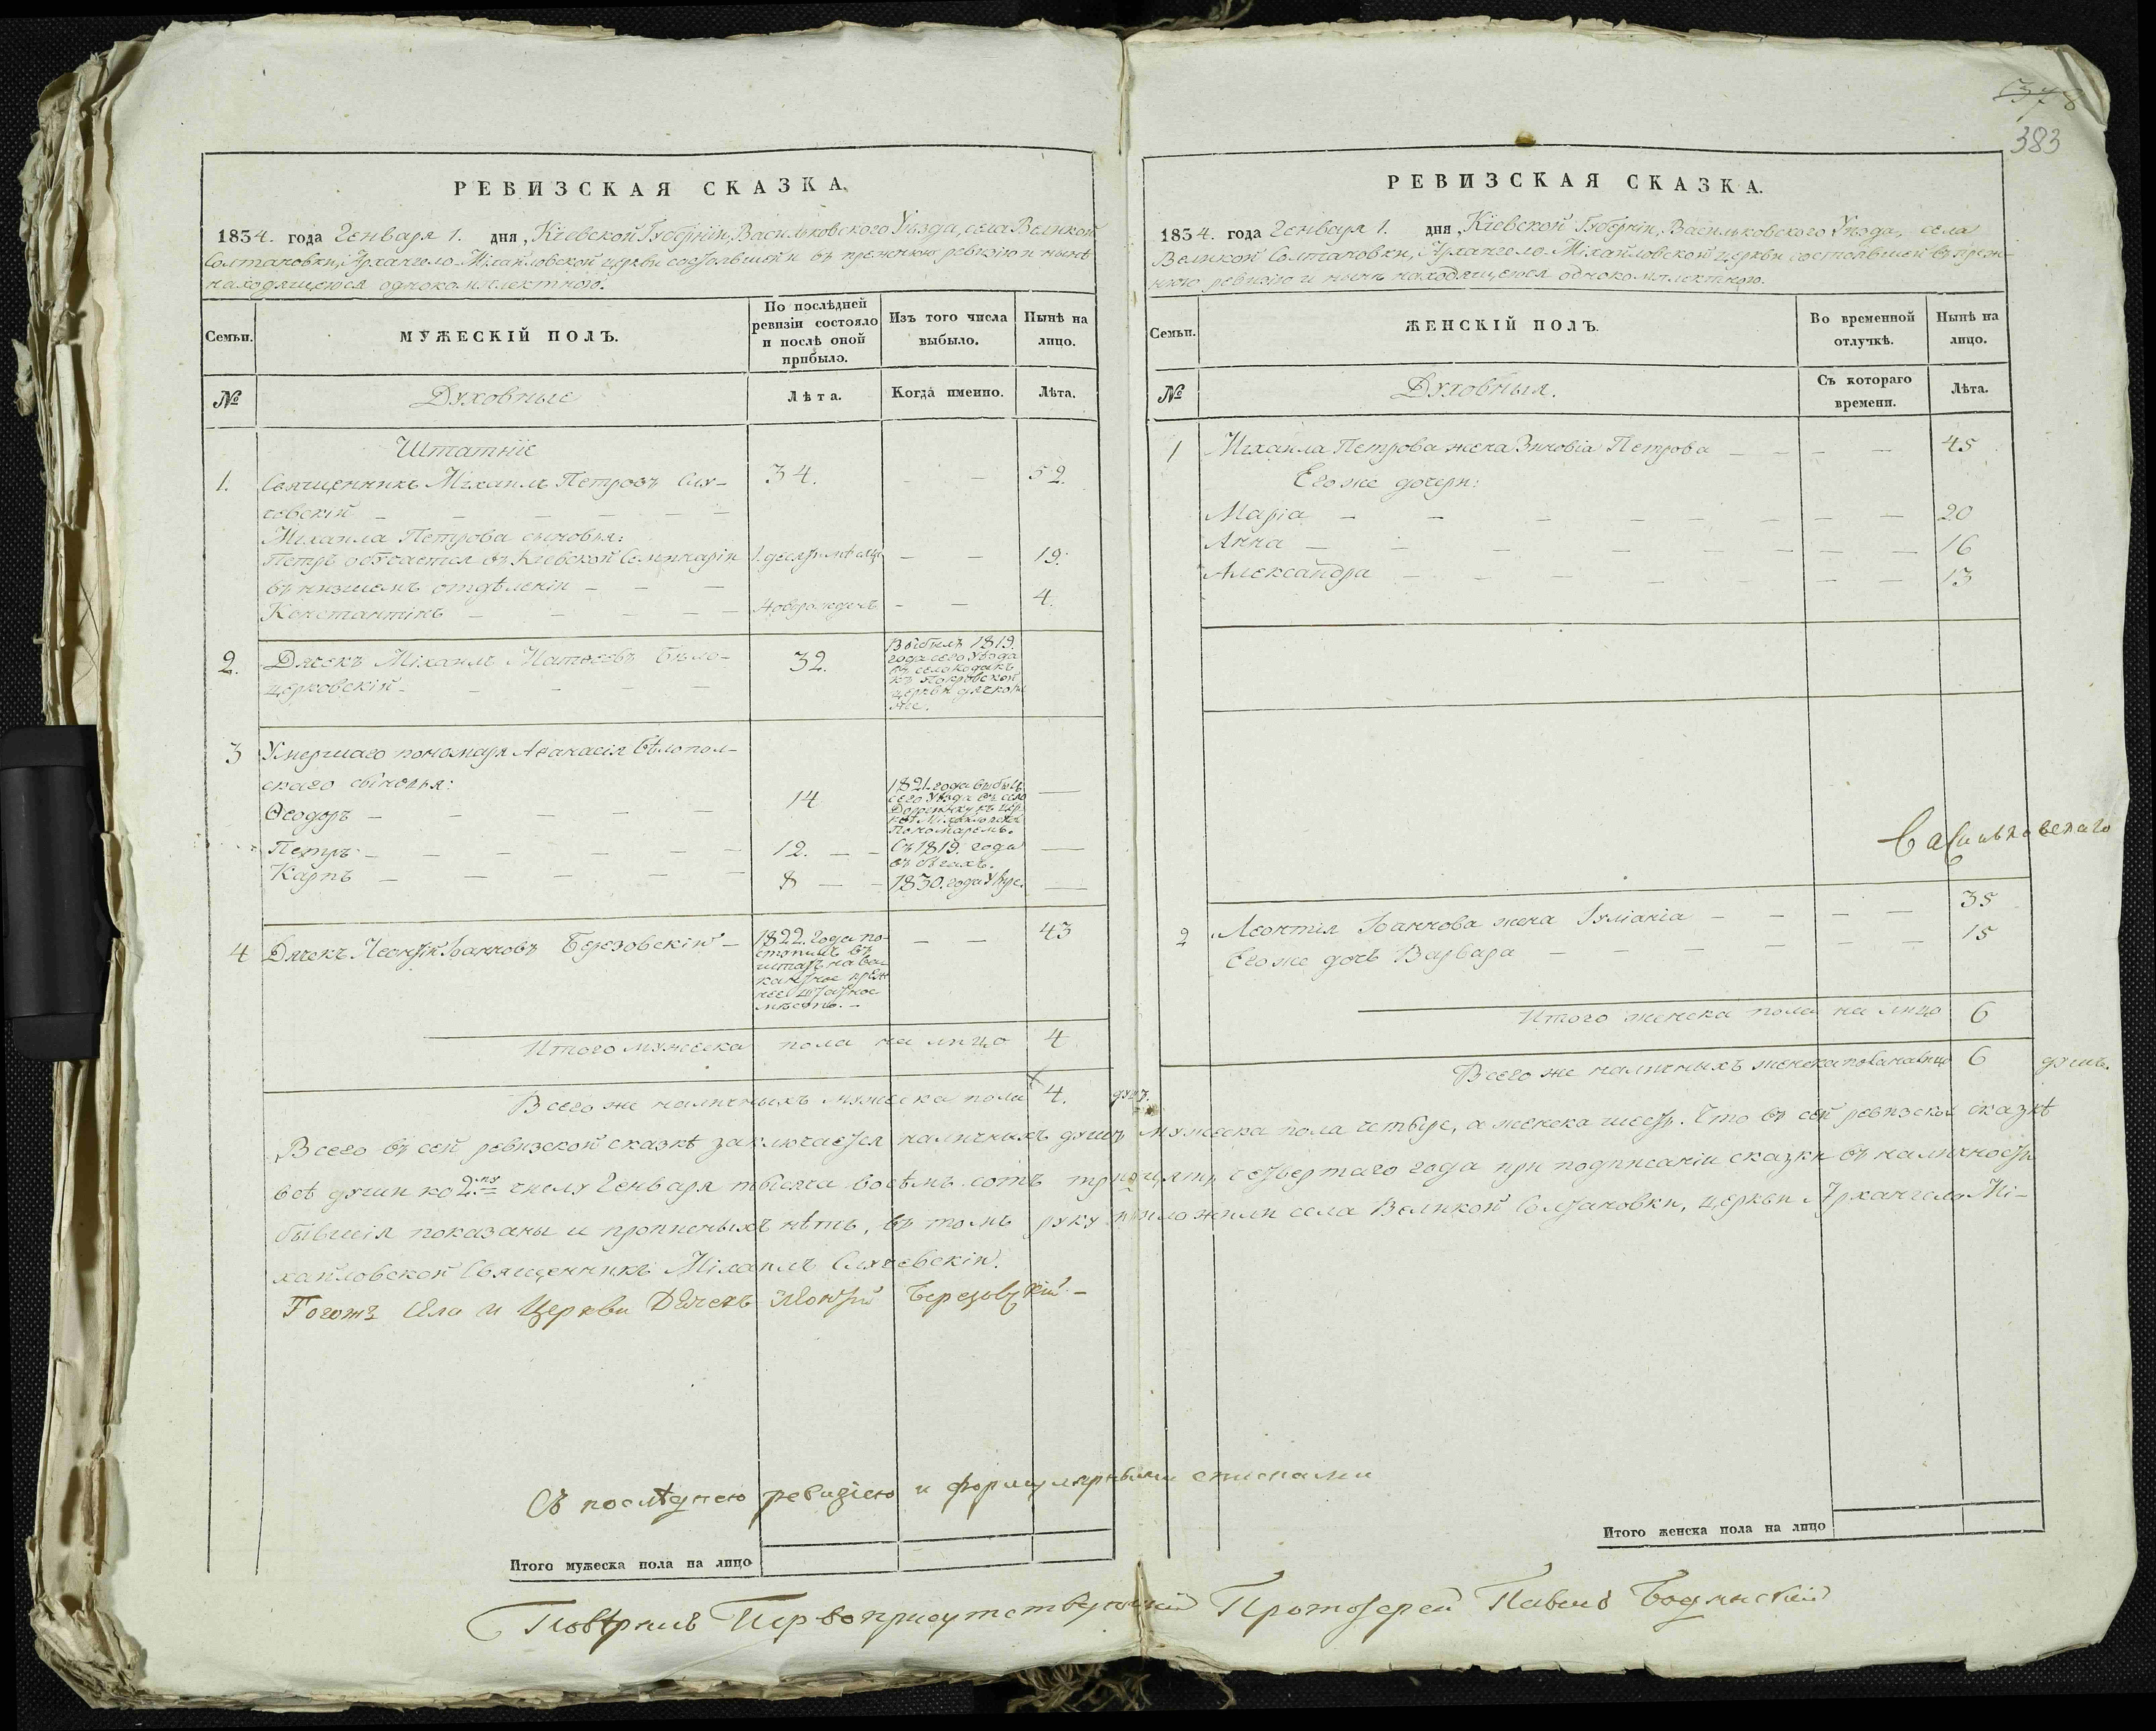 378
383
РЕВИЗСКАЯ СКАЗКА.
1834. года Генваря 1. дня, Кіевской Губерніи, Васильковского Уѣзда, села Великой
Солтановки, Архангело-Михайловской церкви состоявшей и въ прежнюю ревизію и нынѣ
находящеюся однокомплектною.
Семьи.
МУЖЕСКІЙ ПОЛЪ.
По послѣдней ревизіи состояло и послѣ оной прибыло.
Изъ того числа выбыло.
Нынѣ на лицо.
№
Духовные
Лѣта.
Когда именно.
Лѣта.
Штатніе
1. Священникъ Михаилъ Петровъ Слу- 34. — — 52.
чевскій — — — — — —
Михаила Петрова сыновья:
Петръ обучается въ Кіевской Семинаріи 1. десят: мѣсяца — — 19.
въ низшемъ отдѣленіи — — —
Константинъ — — — — — новорожденъ — — 4.
2. Дячекъ Міхаилъ Матѳеевъ Бѣло- 32.
церковскій — — — — —
Выбылъ 1819.
года сего Уѣзда
въ село
къ Покровской
церкви дячкомъ
же.
3 Умершаго пономаря Аѳанасія Бѣлопол-
скаго сыновья:
Ѳеодоръ — — — — — 14
1821. года выбылъ
сего Уѣзда въ село
къ цер-
квѣ Міхайловской
Пономаремъ. —
Петръ — — — — — — 12. — —
Съ 1819. года
въ бѣгахъ. —
Карпъ — — — — — 8 — — 1830. года Умре. —
4 Дячекъ Леонтій Іоанновъ Березовскій —
1822. года по-
ступилъ въ
штатъ на ва-
кантное преж-
нее штатное
мѣсто. —
— — 43
Итого мужеска пола на лицо 4
Всего же наличныхъ мужеска пола 4. душъ.
РЕВИЗСКАЯ СКАЗКА.
1834. года Генваря 1. дня, Кіевской Губерніи, Васильковского Уѣзда, села
Великой Солтановки, Архангело-Міхайловской церкви состоявшей въ преж-
нюю ревизію и нынѣ находящеюся однокомплектною.
Семьи.
ЖЕНСКІЙ ПОЛЪ.
Во временной отлучкѣ.
Нынѣ на лицо.
№
Духовныя.
Съ котораго времени.
Лѣта.
1 Михаила Петрова жена Зиновіа Петрова — — — — 45
Егоже дочери:
Маріа — — — — — — — — 20
Анна — — — — — — — — 16
Александра — — — — — — — 13
Васильковскаго
2 Леонтія Іоаннова жена Іуліаніа — — — — 35
Егоже дочь Варвара — — — — — — 15
Итого женска пола на лицо 6
Всего же наличныхъ женска пола на лицо 6 душъ.
Всего въ сей ревизской сказкѣ заключается наличныхъ душъ мужеска пола четыре, а женска шесть. Что въ сей ревизской сказкѣ
всѣ души ко 2му числу Генваря тысяча восѣмъ сотъ тридцять четвертаго года при подписаніи сказки въ наличности
бывшія показаны и прописныхъ нѣтъ, въ томъ руку приложили села Великой Солтановки, церкви Архангело-Мі-
хайловской Священникъ Міхаилъ Случевскій.
Тогожъ Села и Церкви Дячекъ Леонтій Березовскій —
Съ послѣднею ревизіею и формулярными списками
Итого мужеска пола на лицо
Итого женска пола на лицо
Повѣрилъ Первоприсутствующій Протоіерей Павелъ Бодянскій